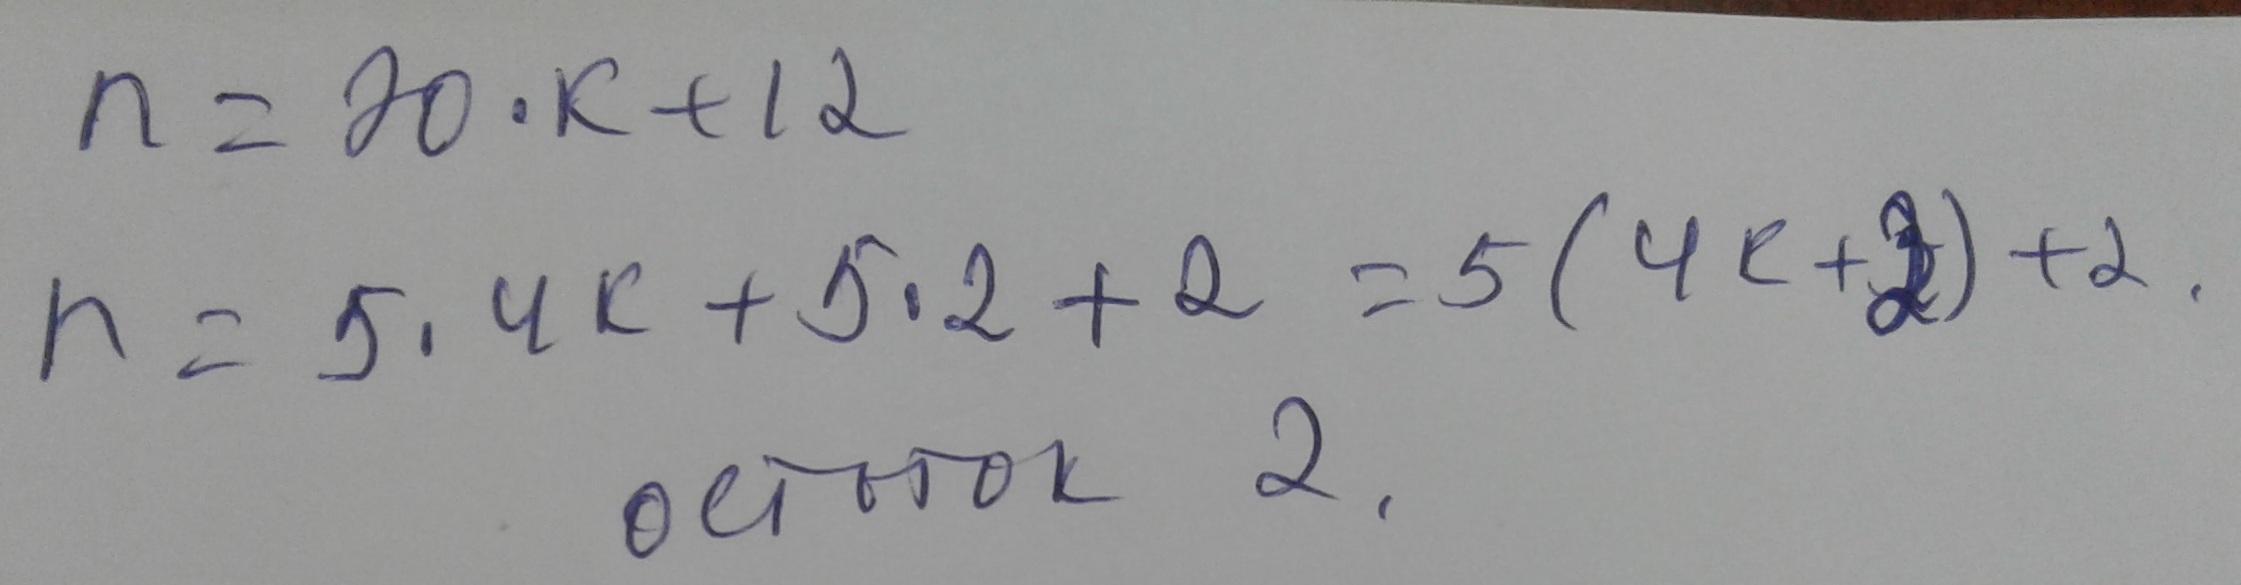 n = 20·к+12
n = 5·4к+5·2+2 = 5(4к+2)+2.
остаток 2.